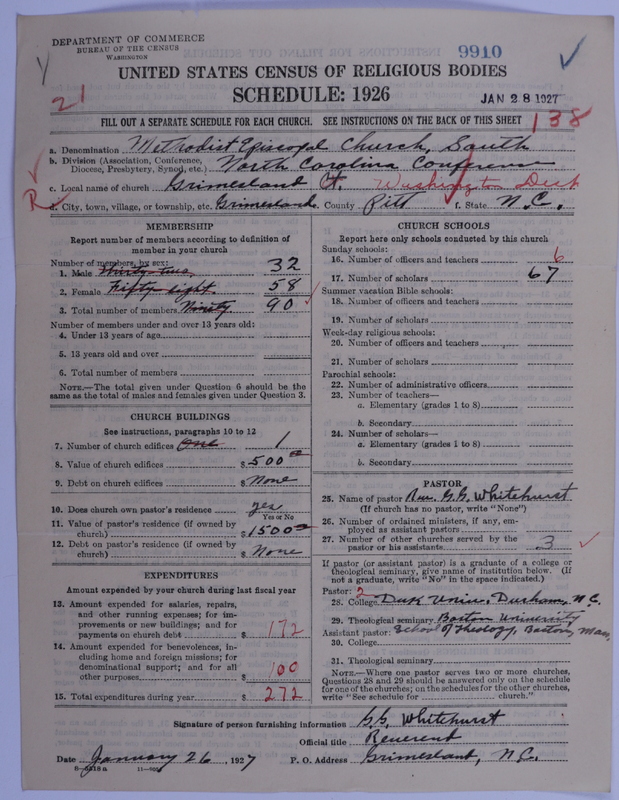 DEPARTMENT OF COMMERCE
BUREAU OF THE CENSUS
WASHINGTON
9910
UNITED STATES CENSUS OF RELIGIOUS BODIES
SCHEDULE: 1926
JAN 28 1927
21
FILL OUT A SEPARATE SCHEDULE FOR EACH CHURCH. SEE INSTRUCTIONS ON THE BACK OF THIS SHEET
138
a. Denomination Methodist Episcopal Church, South
b. Division (Association, Conference, Diocese, Presbytery, Synod, etc.) North Carolina Conference
c. Local name of church Grimesland Ct. Washington Dist
R
d. City, town, village, or township, etc. Grimesland. County Pitt f. State N.C.
MEMBERSHIP
Report number of members according to definition of
member in your church
Number of members, by sex:
1. Male Thirty-two 32
2. Female Fifty-eight 58
3. Total number of members Ninety 90
Number of members under and over 13 years old:
4. Under 13 years of age
5. 13 years old and over
6. Total number of members
NOTE.—The total given under Question 6 should be the
same as the total of males and females given under Question 3.
CHURCH BUILDINGS
See instructions, paragraphs 10 to 12
7. Number of church edifices One 1
8. Value of church edifices $500
9. Debt on church edifices $None
10. Does church own pastor's residence yes
Yes or No
11. Value of pastor's residence (if owned by
church) $1500
12. Debt on pastor's residence (if owned by
church) $None
EXPENDITURES
Amount expended by your church during last fiscal year
13. Amount expended for salaries, repairs,
and other running expenses; for im-
provements or new buildings; and for
payments on church debt $172
14. Amount expended for benevolences, in-
cluding home and foreign missions; for
denominational support; and for all
other purposes 100
15. Total expenditures during year $272
CHURCH SCHOOLS
Report here only schools conducted by this church
Sunday schools:
16. Number of officers and teachers 6
17. Number of scholars 67
Summer vacation Bible schools:
18. Number of officers and teachers
19. Number of scholars
Week-day religious schools:
20. Number of officers and teachers
21. Number of scholars
Parochial schools:
22. Number of administrative officers
23. Number of teachers—
a. Elementary (grades 1 to 8)
b. Secondary
24. Number of scholars—
a. Elementary (grades 1 to 8)
b. Secondary
PASTOR
25. Name of pastor Rev. G.G. Whitehurst
(If church has no pastor, write "None")
26. Number of ordained ministers, if any, em-
ployed as assistant pastors
27. Number of other churches served by the
pastor or his assistants 3
If pastor (or assistant pastor) is a graduate of a college or
theological seminary, give name of institution below. (If
not a graduate, write "No" in the space indicated.)
Pastor: 2
28. College Duk Univ. Durham, N.C.
29. Theological seminary Boston University
Assistant pastor: School of Theology, Boston, Mass,
30. College
31. Theological seminary
NOTE.—Where one pastor serves two or more churches,
Questions 28 and 29 should be answered only on the schedule
for one of the churches; on the schedules for the other churches,
write "See schedule for church."
Signature of person furnishing information G.G. Whitehurst
Official title Reverent
Date January 26, 1927 P. O. Address Grimesland, N.C.